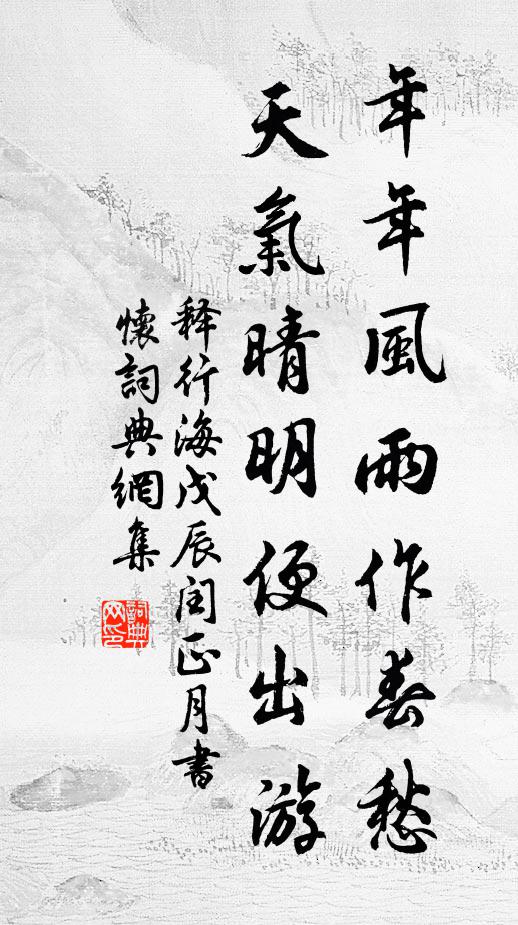 年年風雨作春愁
天氣晴明便出游
释行海戊辰闰正月書
懷詞典網集
詞典
网印